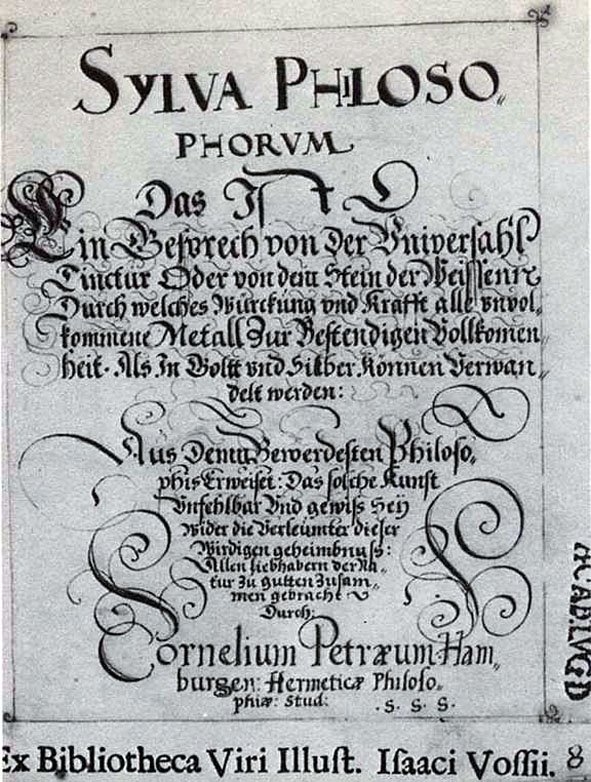 SYLVA PHILOSO„
PHORVM
Das Ist
Ein Gesprech von der Vniversahls
Tinctur Oder von dem Stein der Weissen ꝛc
Durch welches Würckung vnd Krafft alle vnvol„
kommene Metall Zur Bestendigen Vollkomen„
heit. Als In Goltt vnd Silber Können Verwan„
delt werden:
Aus Denen Bewerdesten Philoso„
phis Erweiset: Das solche Kunst
Vnfehlbar Vnd gewiss Sey
Wider die Verleumter dieser
Wirdigen geheimbnuss:
Allen liebhabern der Na„
tur Zu gutten Zusam„
men gebracht
Durch:
Cornelium Petræum Ham„
burgen: Hermeticæ Philoso„
phiæ: Stud: .S. S. S.
ACAD. LVGD
Ex Bibliotheca Viri Illust. Isaaci Vossii. 8